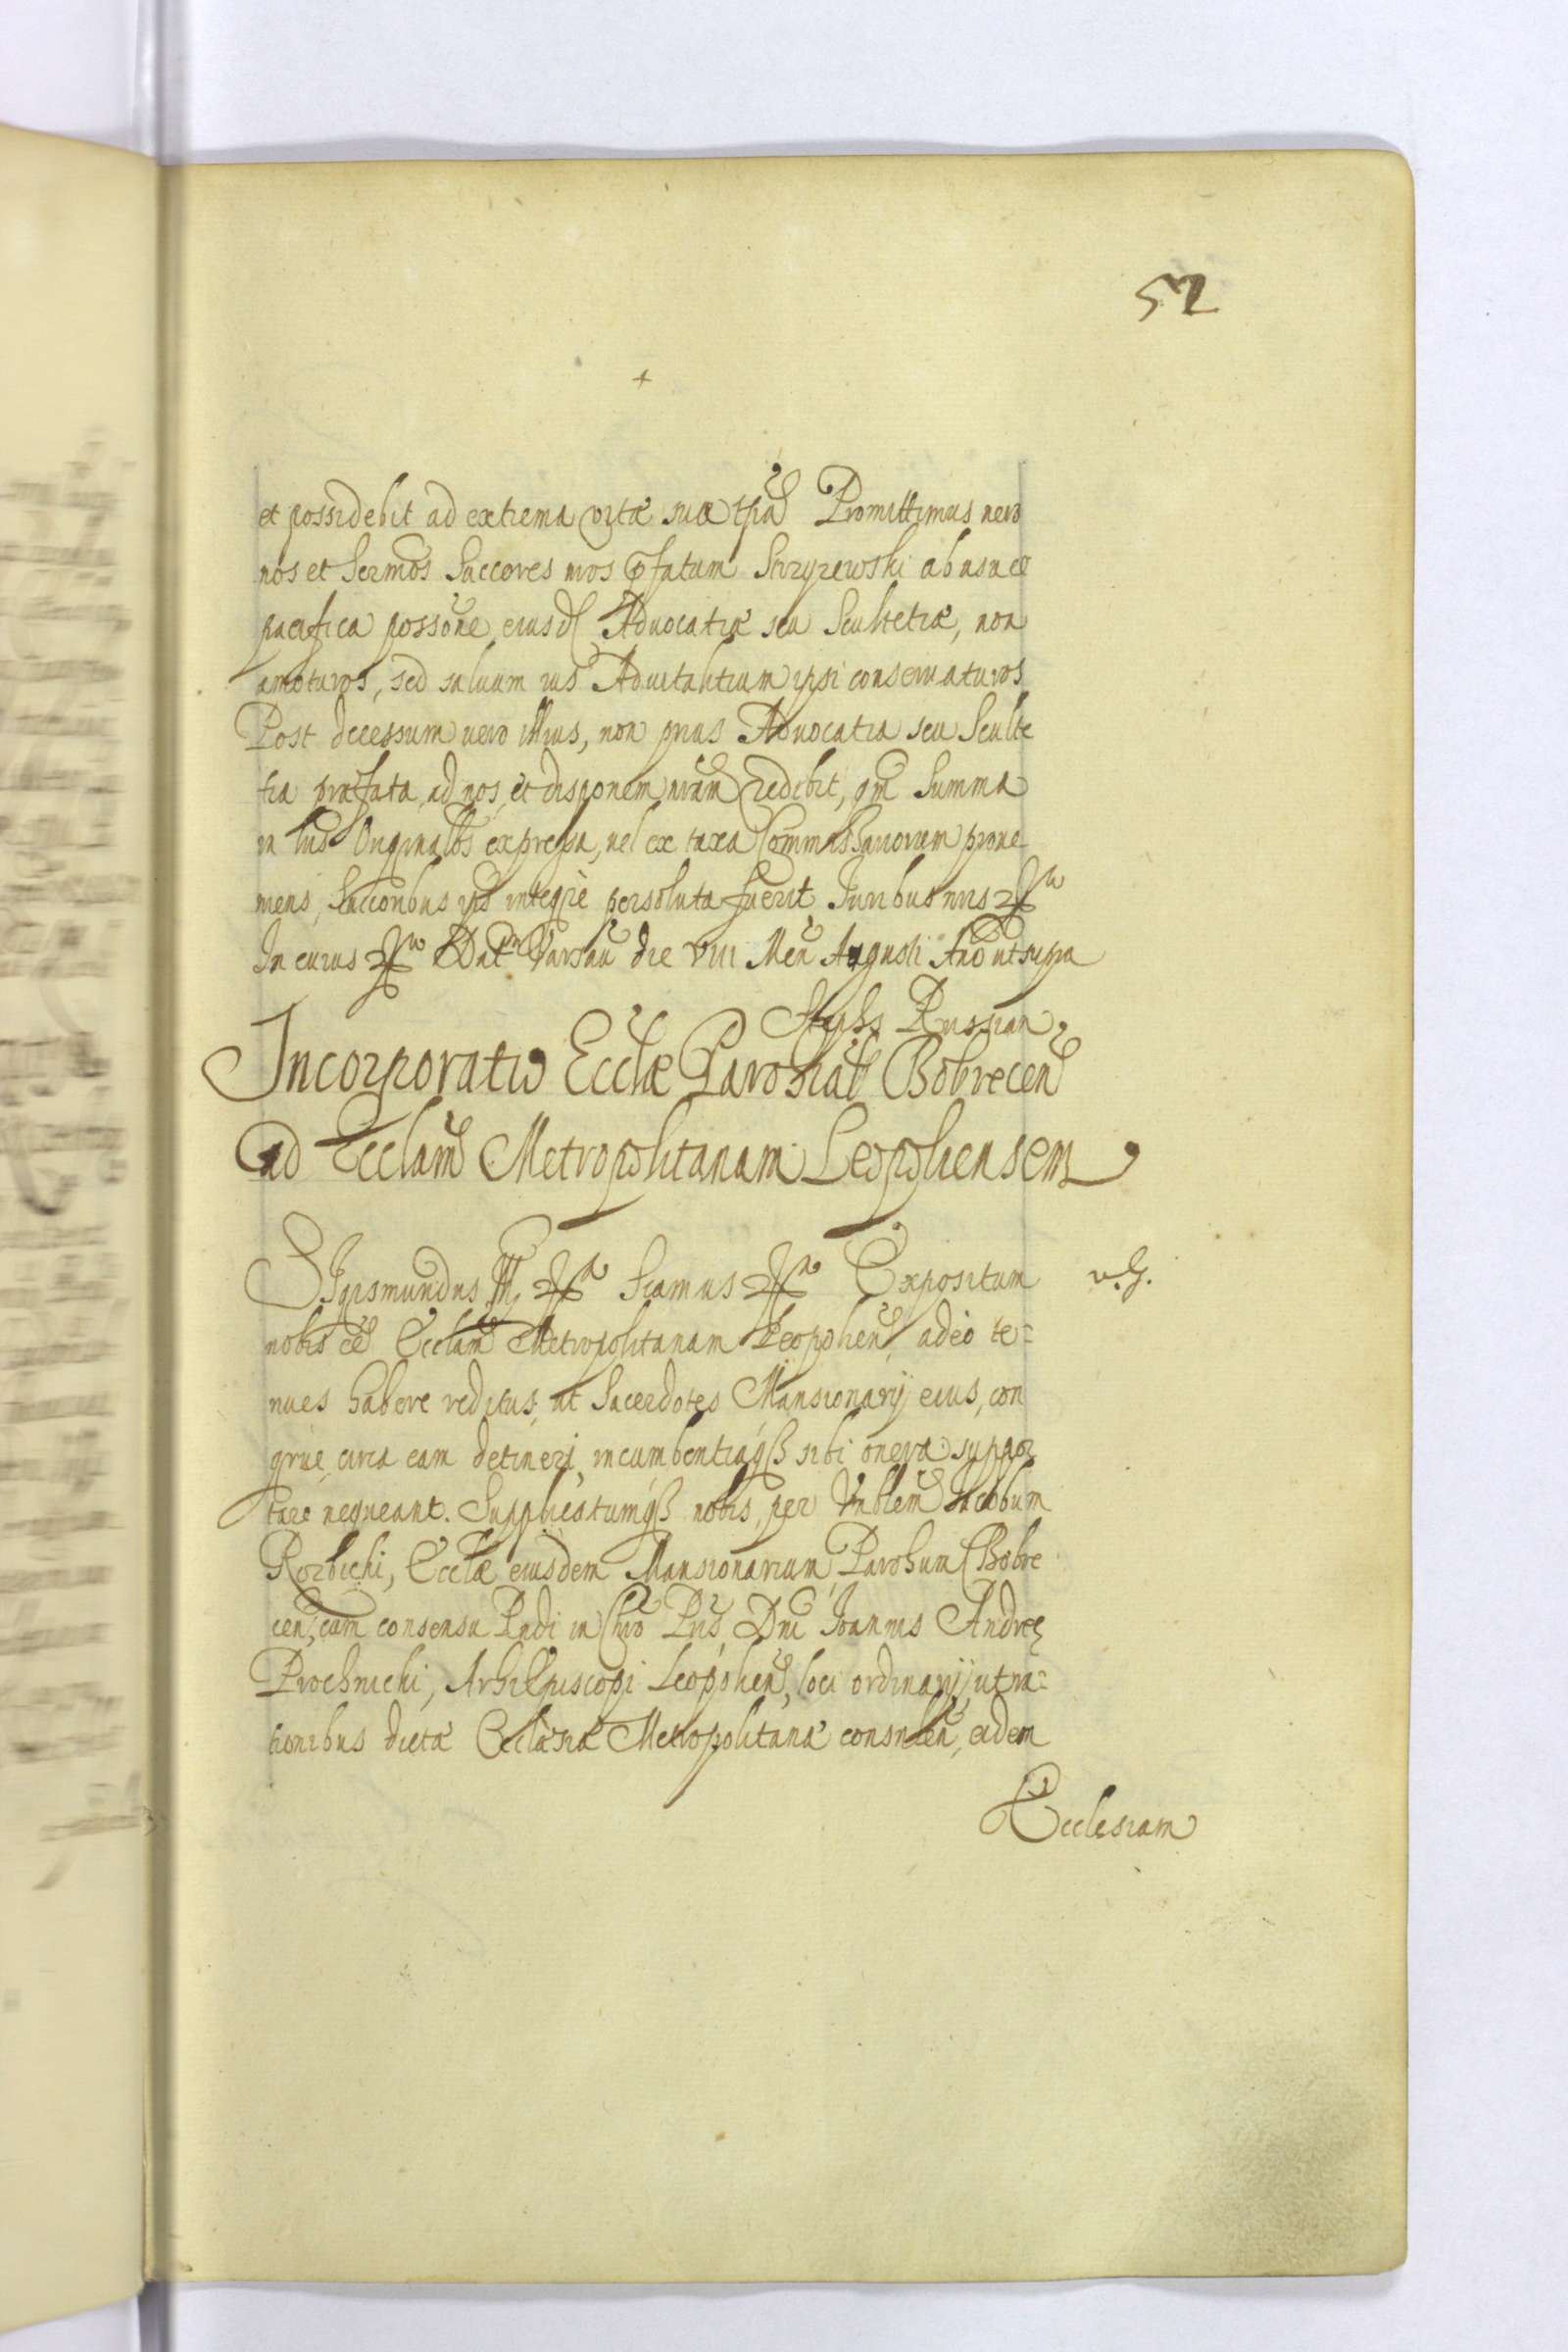 52
et possidebit ad extrema vitæ suæ tpa Promittimus vero
nos et Sermos Succores nros pfatum Stryzewski ab usu ce
pacifica possone eiusd Advocatiæ seu Scultetiæ, non
amoturos, sed saluum ius Aduitalitium ipsi conservaturos
Post decessum vero illius, non prius Advocatia seu Sculte
tia præfata, ad nos, et disponem nram redibit, qm Summa
in Lris Originalbs expressa, vel ex taxa Commissariorum prove
niens, Succoribus ips integre persoluta fuerit, Iuribus nris
In cuius Dat Varsav die VIII Men Augusti Ano ut supra
Incorporatio Ecclæ Parohial Bobrecen
ad Ecclam Metropolitanam Leopoliensem
Sigismundus III Scamus Expositum
nobis ee Ecclam Metropolitanam Leopolien, adeo te=
nues habere reditus, ut Sacerdotes Mansionarij eius, con
grue circa eam detineri, incumbentiaqß sibi onera suppor
tare nequeant. Supplicatumqß nobis, per Vnblem Iacobum
Rozbicki, Ecclæ eiusdem Mansionarium, Parohum Bobre
cen, cum consensu Rndi in Chro Pris Dni Ioannis Andreę
Prochnicki, ArhiEpiscopi Leopolien, loci ordinarij, ut ra=
tionibus dictæ Ecclæsiæ Metropolitanæ consulen, eidem
Ecclesiam